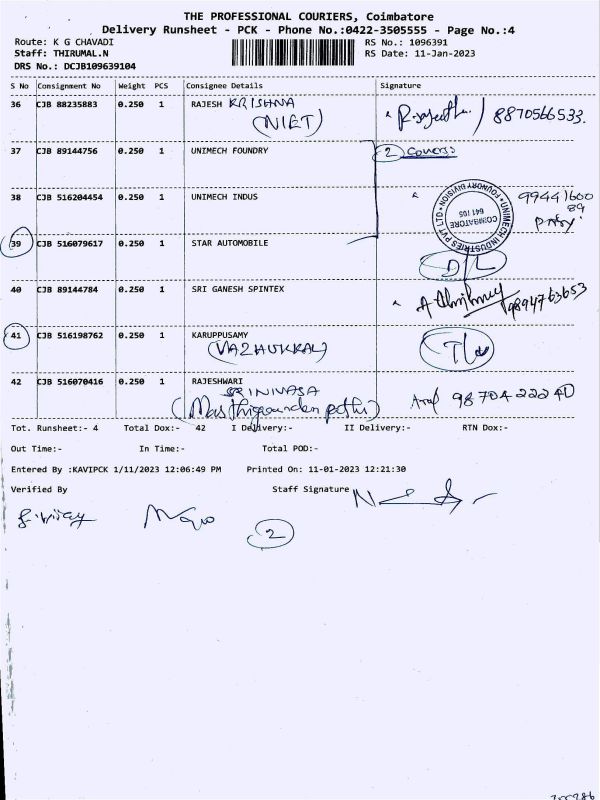 THE PROFESSIONAL COURIERS, Coimbatore
Delivery Runsheet - PCK - Phone No.:0422-3505555 - Page No.:4
Route: K G CHAVADI RS No.: 1096391
Staff: THIRUMAL.N RS Date: 11-Jan-2023
DRS No.: DCJB109639104
S No Consignment No Weight PCS Consignee Details Signature
36 CJB 88235883 0.250 1 RAJESH KRISHNA 8870566533.
(NIET)
37 CJB 89144756 0.250 1 UNIMECH FOUNDRY 2 Covers
38 CJB 516204454 0.250 1 UNIMECH INDUS 99441600
89
UNIMECH INDUSTRIES PVT LTD • FOUNDRY DIVISION •
COIMBATORE
641 105
39 CJB 516079617 0.250 1 STAR AUTOMOBILE
D/L
40 CJB 89144784 0.250 1 SRI GANESH SPINTEX 9894763653
41 CJB 516198762 0.250 1 KARUPPUSAMY
(VAZHUKKAL)
42 CJB 516070416 0.250 1 RAJESHWARI
SRINIVASA 98704 222 40
Tot. Runsheet:- 4 Total Dox:- 42 I Delivery:- II Delivery:- RTN Dox:-
Out Time:- In Time:- Total POD:-
Entered By :KAVIPCK 1/11/2023 12:06:49 PM Printed On: 11-01-2023 12:21:30
Verified By Staff Signature
2